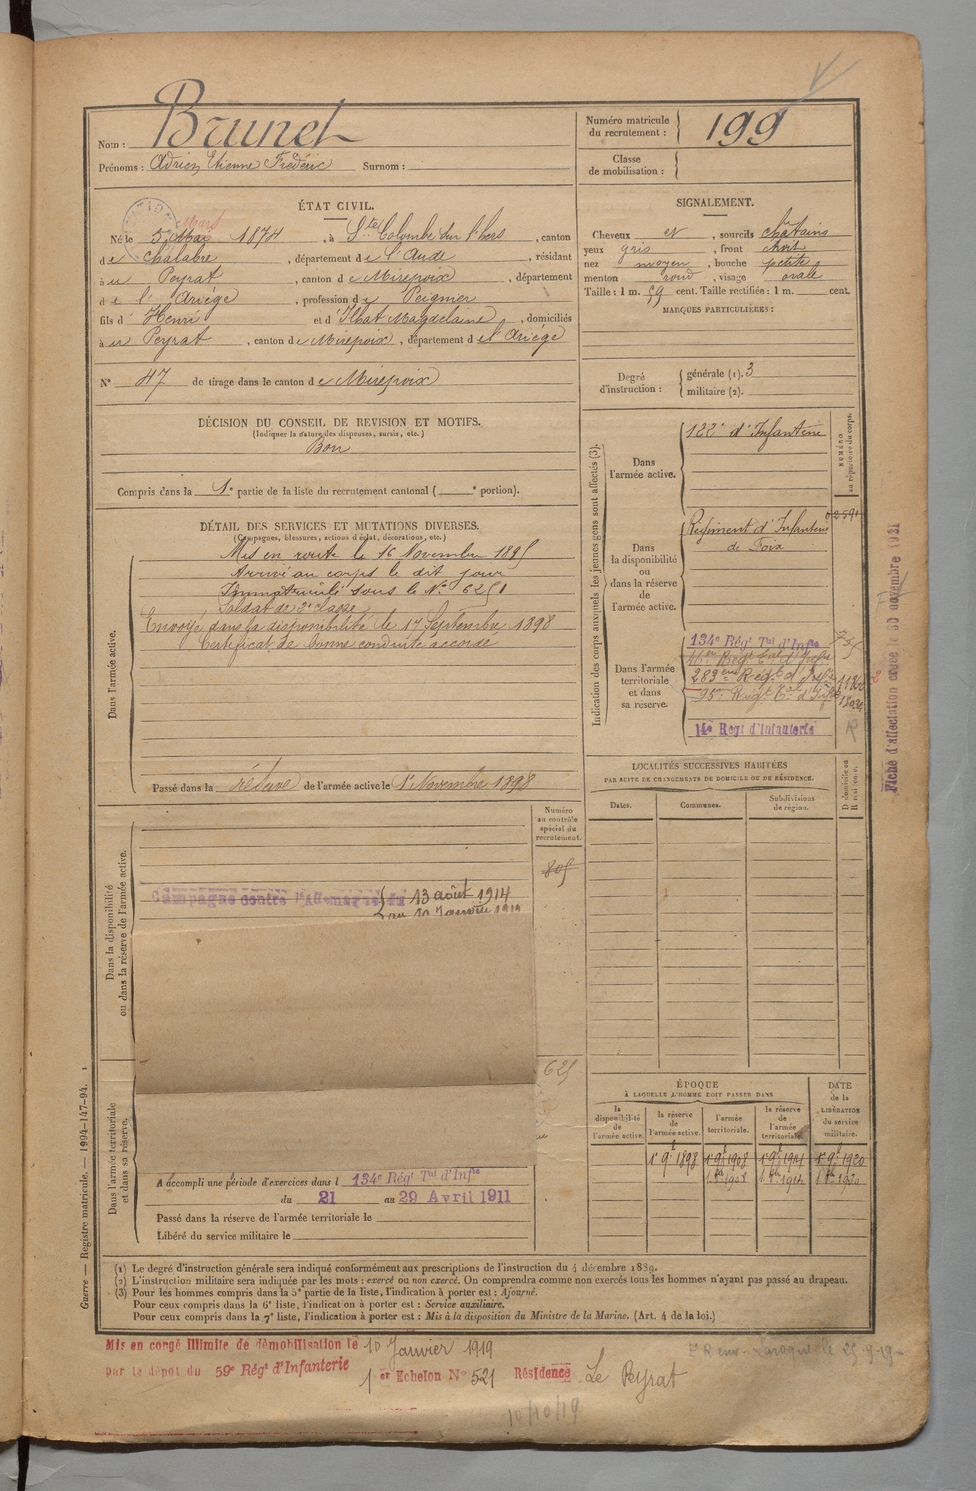 Nom : Brunet
Prénoms : Adrien Etienne Frédéric Surnom :
Numéro matricule du recrutement : 199
Classe de mobilisation :
ÉTAT CIVIL.
Mars
Né le 5 Mai 1874, à Ste Colombe sur l'hers, canton
de Chalabre, département de l'Aude, résidant
à u Peyrat, canton de Mirepoix, département
de l'Ariége, profession de Peignier
fils d' Henri et d' Ilhat Magdelaine, domiciliés
à u Peyrat, canton de Mirepoix, département de l'Ariége
N° 47 de tirage dans le canton de Mirepoix
SIGNALEMENT.
Cheveux et, sourcils chatains
yeux gris, front court
nez moyen, bouche petite
menton rond, visage ovale
Taille : 1 m. 59 cent. Taille rectifiée : 1 m. cent.
MARQUES PARTICULIÈRES :
Degré d'instruction : générale (1). 3
militaire (2).
DÉCISION DU CONSEIL DE REVISION ET MOTIFS.
(Indiquer la nature des dispenses, sursis, etc.)
Bon
Compris dans la 1e partie de la liste du recrutement cantonal ( e portion).
DÉTAIL DES SERVICES ET MUTATIONS DIVERSES.
(Campagnes, blessures, actions d'éclat, décorations, etc.)
Dans l'armée active.
Mis en route le 16 Novembre 1895
Arrivé au corps le dit jour
Immatriculé sous le N° 6251
Soldat de 2e classe
Envoyé dans la disponibilité le 17 Septembre 1898
Certificat de bonne conduite accordé
Passé dans la réserve de l'armée active le 1er Novembre 1898
Indication des corps auxquels les jeunes gens sont affectés (3).
NUMÉRO au répertoire du corps.
Dans l'armée active.
122e d'Infanterie
Dans la disponibilité ou dans la réserve de l'armée active.
Régiment d'Infanterie
de Foix
02591
Dans l'armée territoriale et dans sa réserve.
134e Régt Tal d'Infie
283ème Régt d'Infie
95e Régt Tal d'Infie
14e Regt d'Infanterie
Fiche d'affectation créée le 30 novembre 1921
LOCALITÉS SUCCESSIVES HABITÉES
PAR SUITE DE CHANGEMENTS DE DOMICILE OU DE RÉSIDENCE.
Dates.
Communes.
Subdivisions de région.
D domicile ou R résidence.
Numéro au contrôle spécial du recrutement.
805
625
Dans la disponibilité ou dans la réserve de l'armée active.
Campagne contre l'Allemagne du 13 août 1914
au 10 Janvier 1919
Dans l'armée territoriale et dans sa réserve.
A accompli une période d'exercices dans l 134e Régt Tal d'Infie
du 21 au 29 Avril 1911
Passé dans la réserve de l'armée territoriale le
Libéré du service militaire le
ÉPOQUE
À LAQUELLE L'HOMME DOIT PASSER DANS
la disponibilité de l'armée active.
la réserve de l'armée active.
l'armée territoriale.
la réserve de l'armée territoriale.
DATE de la LIBÉRATION du service militaire.
1er 9e 1898
1er 9e 1908
1er 9e 1914
1er 9e 1920
Guerre — Registre matricule. — 1994-147-94. 1
(1) Le degré d'instruction générale sera indiqué conformément aux prescriptions de l'instruction du 4 décembre 1889.
(2) L'instruction militaire sera indiquée par les mots : exercé ou non exercé. On comprendra comme non exercés tous les hommes n'ayant pas passé au drapeau.
(3) Pour les hommes compris dans la 5e partie de la liste, l'indication à porter est : Ajourné.
Pour ceux compris dans la 6e liste, l'indication à porter est : Service auxiliaire.
Pour ceux compris dans la 7e liste, l'indication à porter est : Mis à la disposition du Ministre de la Marine. (Art. 4 de la loi.)
Mis en congé illimité de démobilisation le 10 Janvier 1919
par le dépot du 59e Régt d'Infanterie
1er Echelon N° 521 Résidence Le Peyrat
le 25-9-19
10/10/19